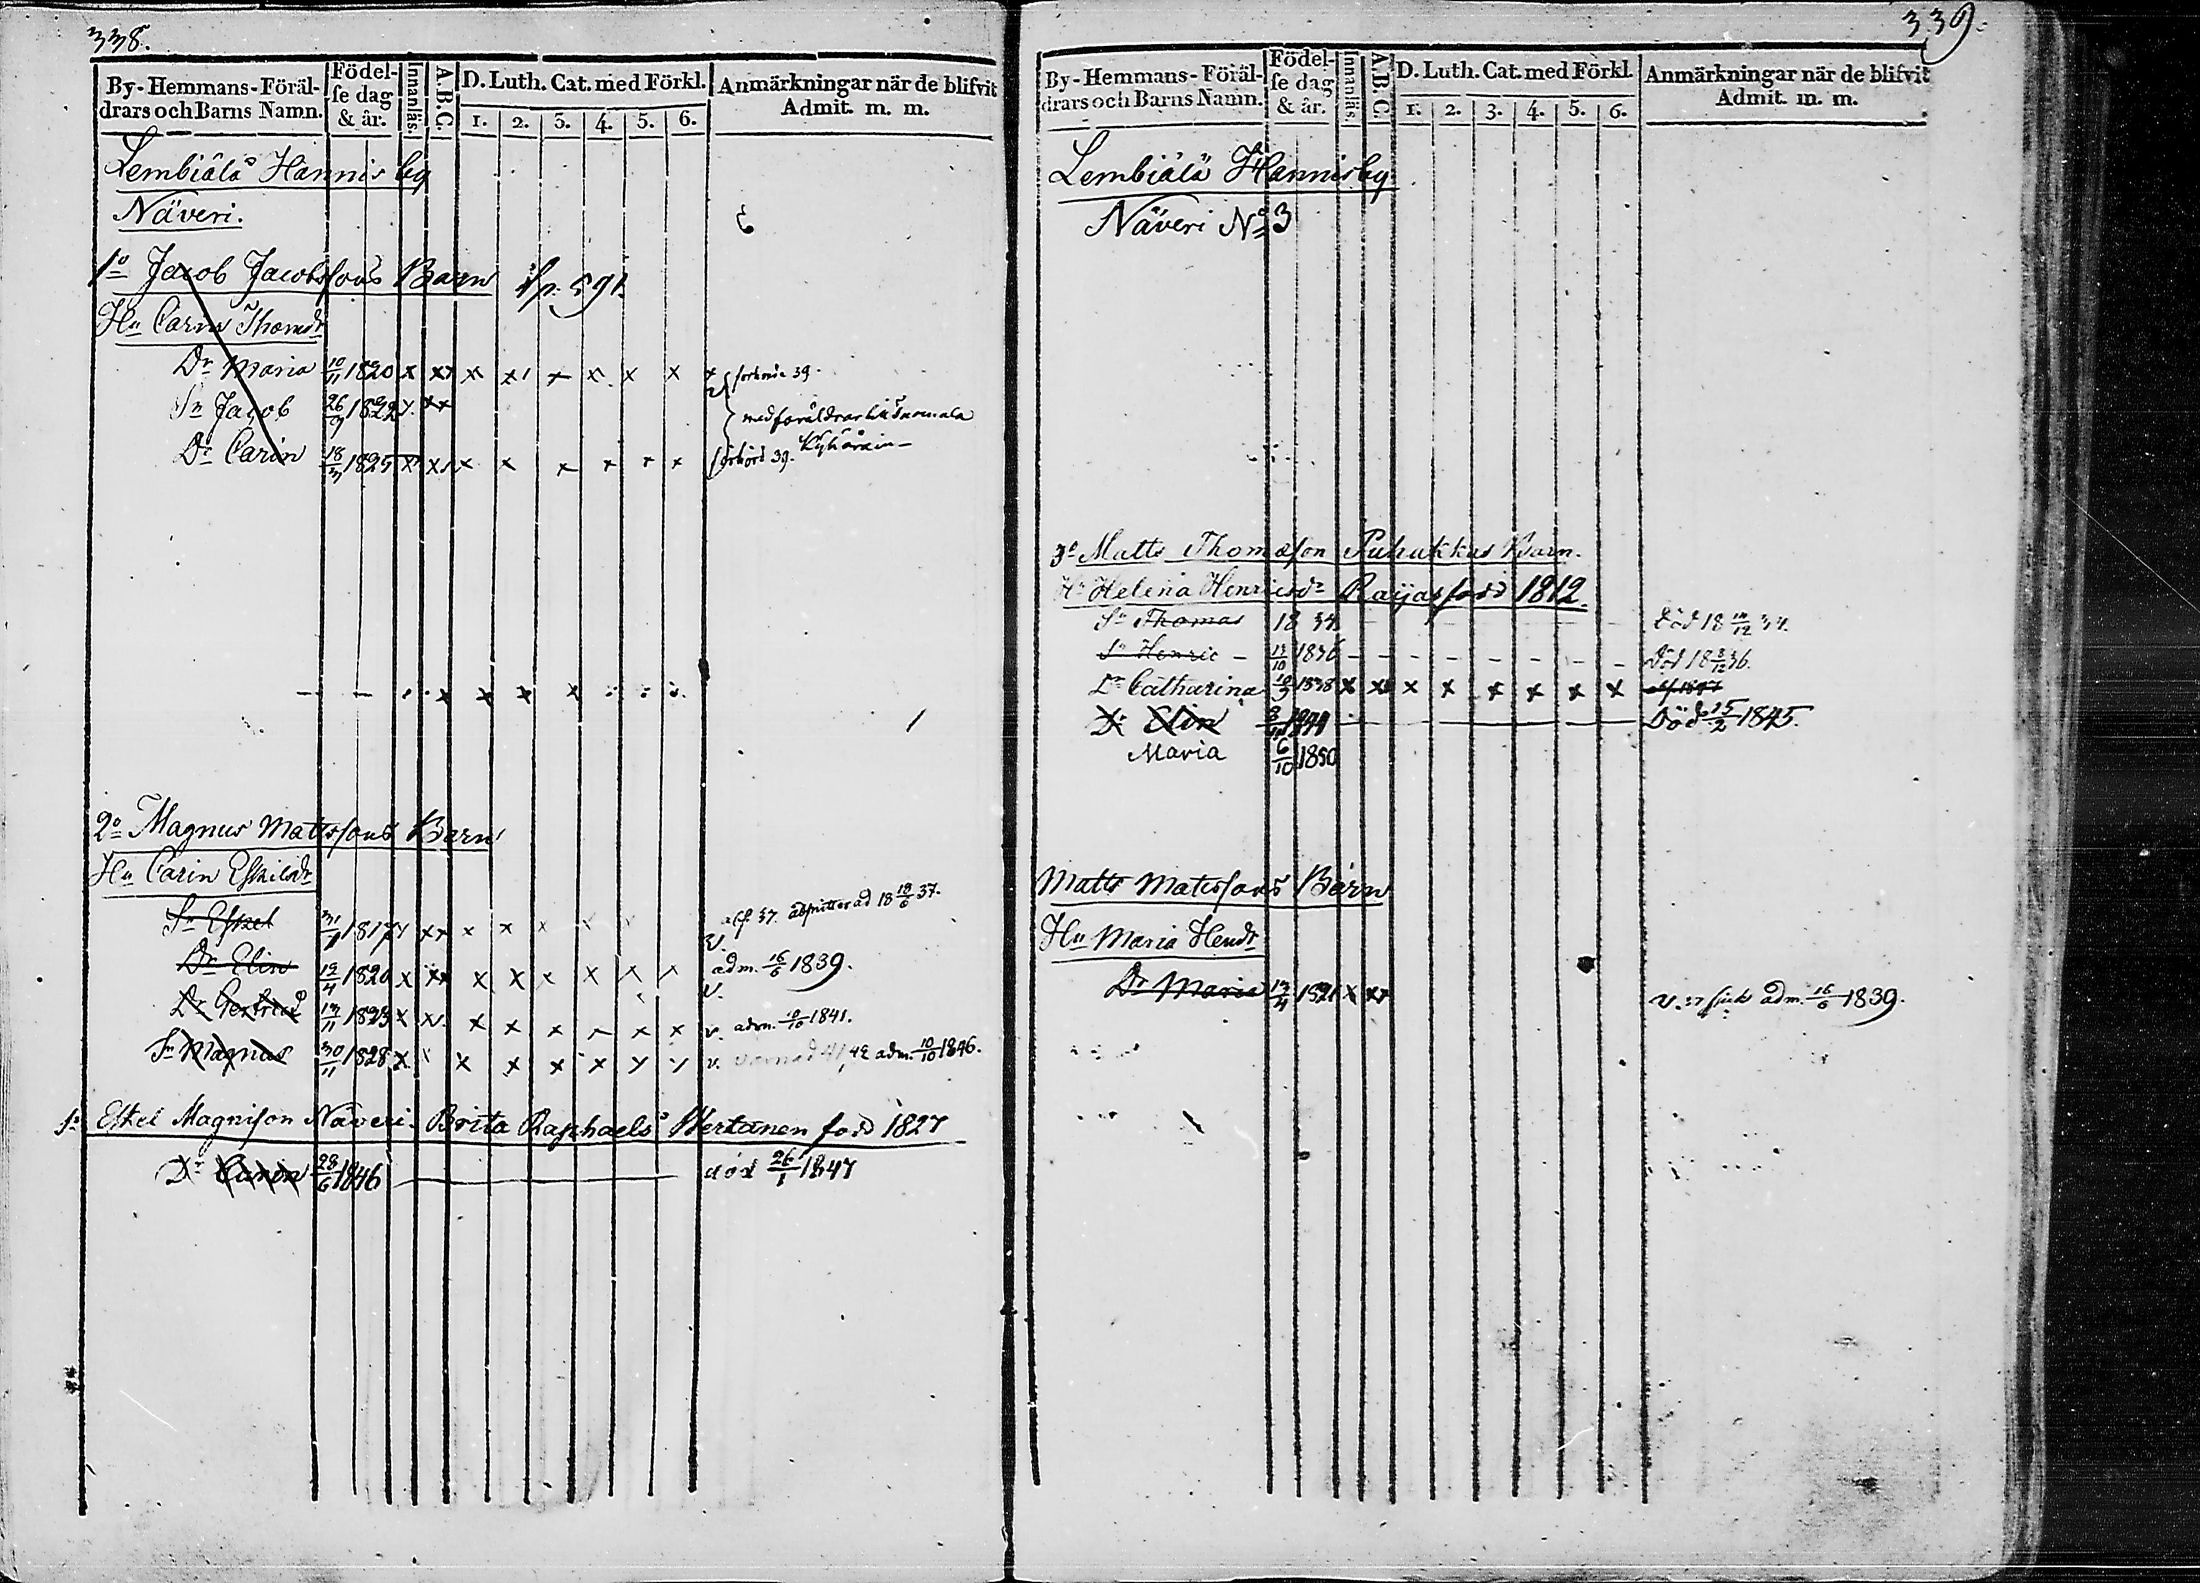 338.
By-Hemmans-Föräl-
drars och Barns Namn.
Födel-
se dag
& år.
Innanläs.
A.B.C.
D. Luth. Cat. med Förkl.
1. 2. 3. 4. 5. 6.
Anmärkningar när de blifvit
Admit. m. m.
Lembiälä Hannis by
Näveri.
1o Jacob Jacobssons Barn
Hu Carin Thomdr
Dr Maria 10/11 1820 x xx x x x x x x
Sn Jacob 26/9 1822 x xx med föräldrar
Dr Carin 18/3 1825 x xx x x x x x x 39.
2o Magnus Mattssons Barn
Hu Carin Eskilsdr
Sn Eskel 1817 37. 37.
Dr Elin 12/4 1820 x xx x x x x x x adm. 16/6 1839.
Dr Gertrud 1823 x x x x x x x v. adm. 1841.
Sn Magnus 30/11 1828 x x x x x x x v. 42 adm. 10/10 1846.
Eskel Magnison Näveri. Brita Raphaels Hertanen född 1827
Dr Carin 28/6 1846 död 26/1 1847
339.
By-Hemmans-Föräl-
drars och Barns Namn.
Födel-
se dag
& år.
Innanläs.
A.B.C.
D. Luth. Cat. med Förkl.
1. 2. 3. 4. 5. 6.
Anmärkningar när de blifvit
Admit. m. m.
Lembiälä Hannisby
Näveri No 3
3o Matts Thomasson Puhakkas Barn.
Hu Helena Henricsdr född 1812.
Sn Thomas 1834 Död 18 34.
Sn Henric 1836 Död 18 36.
Dr Catharina 1838 x xx x x x x x x
Dr Elin Död 25/2 1845.
Maria 6/10 1850
Matts Matssons Barn
Hu Maria Hendr
Dr Maria 1821 x xx adm. 16/6 1839.